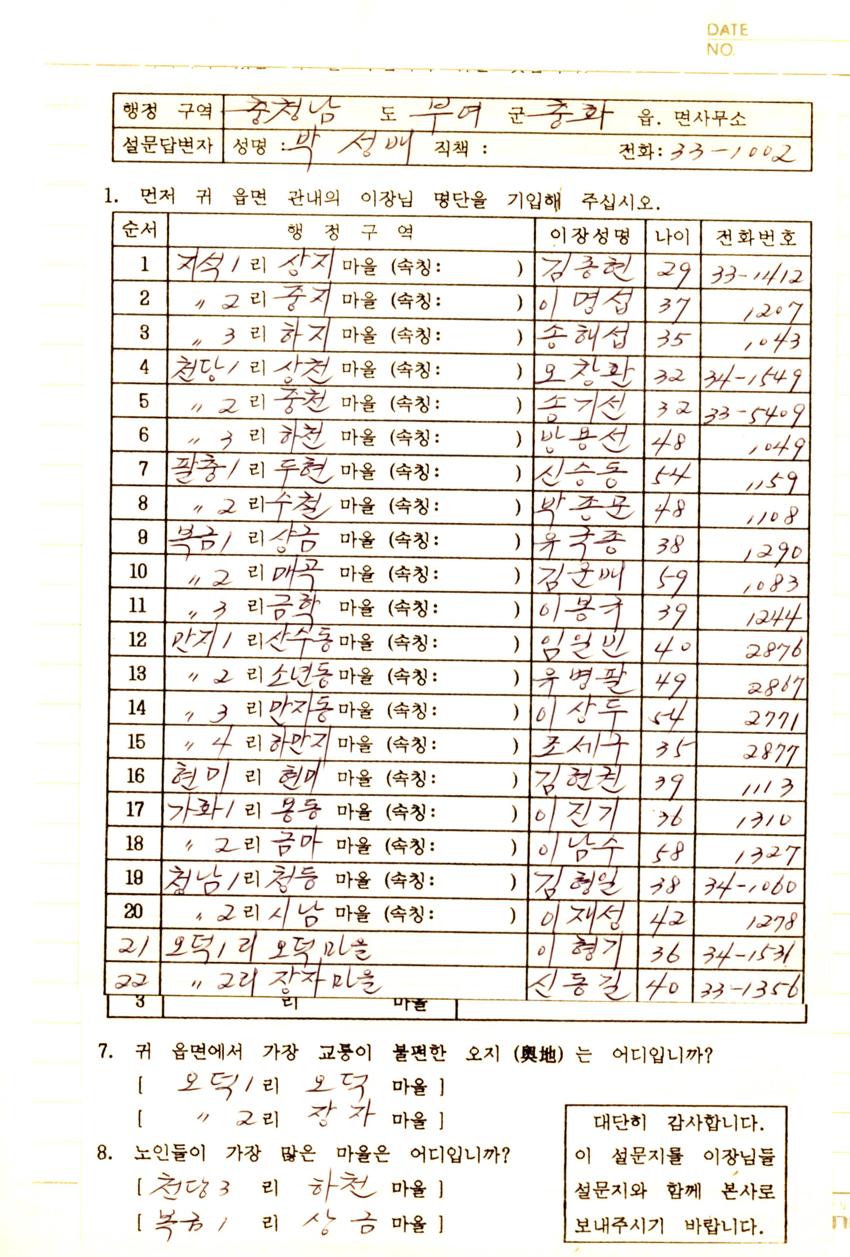 DATE
NO.
행정 구역 충청남 도 부여 군 충화 읍. 면사무소
설문답변자 성명 : 박 성배 직책 : 전화: 33-1002
1. 먼저 귀 읍면 관내의 이장님 명단을 기입해 주십시오.
순서 행 정 구 역 이장성명 나이 전화번호
1 지석1 리 상지 마을 (속칭: ) 김종현 29 33-1412
2 〃 2 리 중지 마을 (속칭: ) 이명섭 37 1207
3 〃 3 리 하지 마을 (속칭: ) 송해섭 35 1043
4 천당1 리 상천 마을 (속칭: ) 오창환 32 34-1549
5 〃 2 리 중천 마을 (속칭: ) 송기선 32 33-5409
6 〃 3 리 하천 마을 (속칭: ) 방용선 48 1049
7 팔충1 리 두현 마을 (속칭: ) 신승동 54 1159
8 〃 2 리 수철 마을 (속칭: ) 박종문 48 1108
9 복금1 리 상금 마을 (속칭: ) 유국종 38 1290
10 〃 2 리 매곡 마을 (속칭: ) 김군배 59 1083
11 〃 3 리 금학 마을 (속칭: ) 이봉구 39 1244
12 만지1 리 산수동 마을 (속칭: ) 임일빈 40 2876
13 〃 2 리 소년동 마을 (속칭: ) 유병팔 49 2867
14 〃 3 리 만자동 마을 (속칭: ) 이상두 54 2771
15 〃 4 리 하만지 마을 (속칭: ) 조세구 35 2877
16 현미 리 현미 마을 (속칭: ) 김현권 39 1113
17 가화1 리 봉동 마을 (속칭: ) 이진기 36 1310
18 〃 2 리 금마 마을 (속칭: ) 이남수 58 1327
19 청남1 리 청등 마을 (속칭: ) 김형일 38 34-1060
20 〃 2 리 시남 마을 (속칭: ) 이재성 42 1278
21 오덕1 리 오덕마을 이형기 36 34-1531
22 〃 2리 장자마을 신동길 40 33-1356
3 리 마을
7. 귀 읍면에서 가장 교통이 불편한 오지 (奧地) 는 어디입니까?
[ 오덕1 리 오덕 마을 ]
[ 〃 2 리 장자 마을 ]
8. 노인들이 가장 많은 마을은 어디입니까?
[ 천당3 리 하천 마을 ]
[ 복금1 리 상금 마을 ]
대단히 감사합니다.
이 설문지를 이장님들
설문지와 함께 본사로
보내주시기 바랍니다.